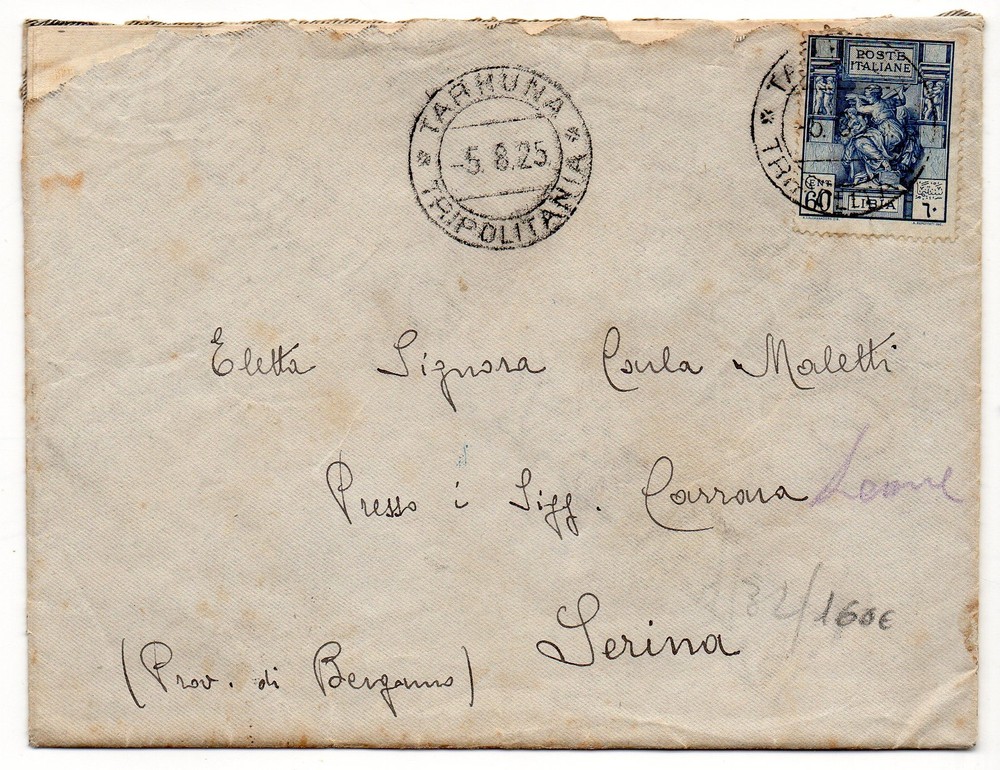 TARHUNA
-5.8.25
TRIPOLITANIA
POSTE
ITALIANE
CENT
60
LIBIA
٦٠
Eletta Signora Carla Maletti
Presso i Sigg. Carrara Leone
Serina
160€
(Prov. di Bergamo)